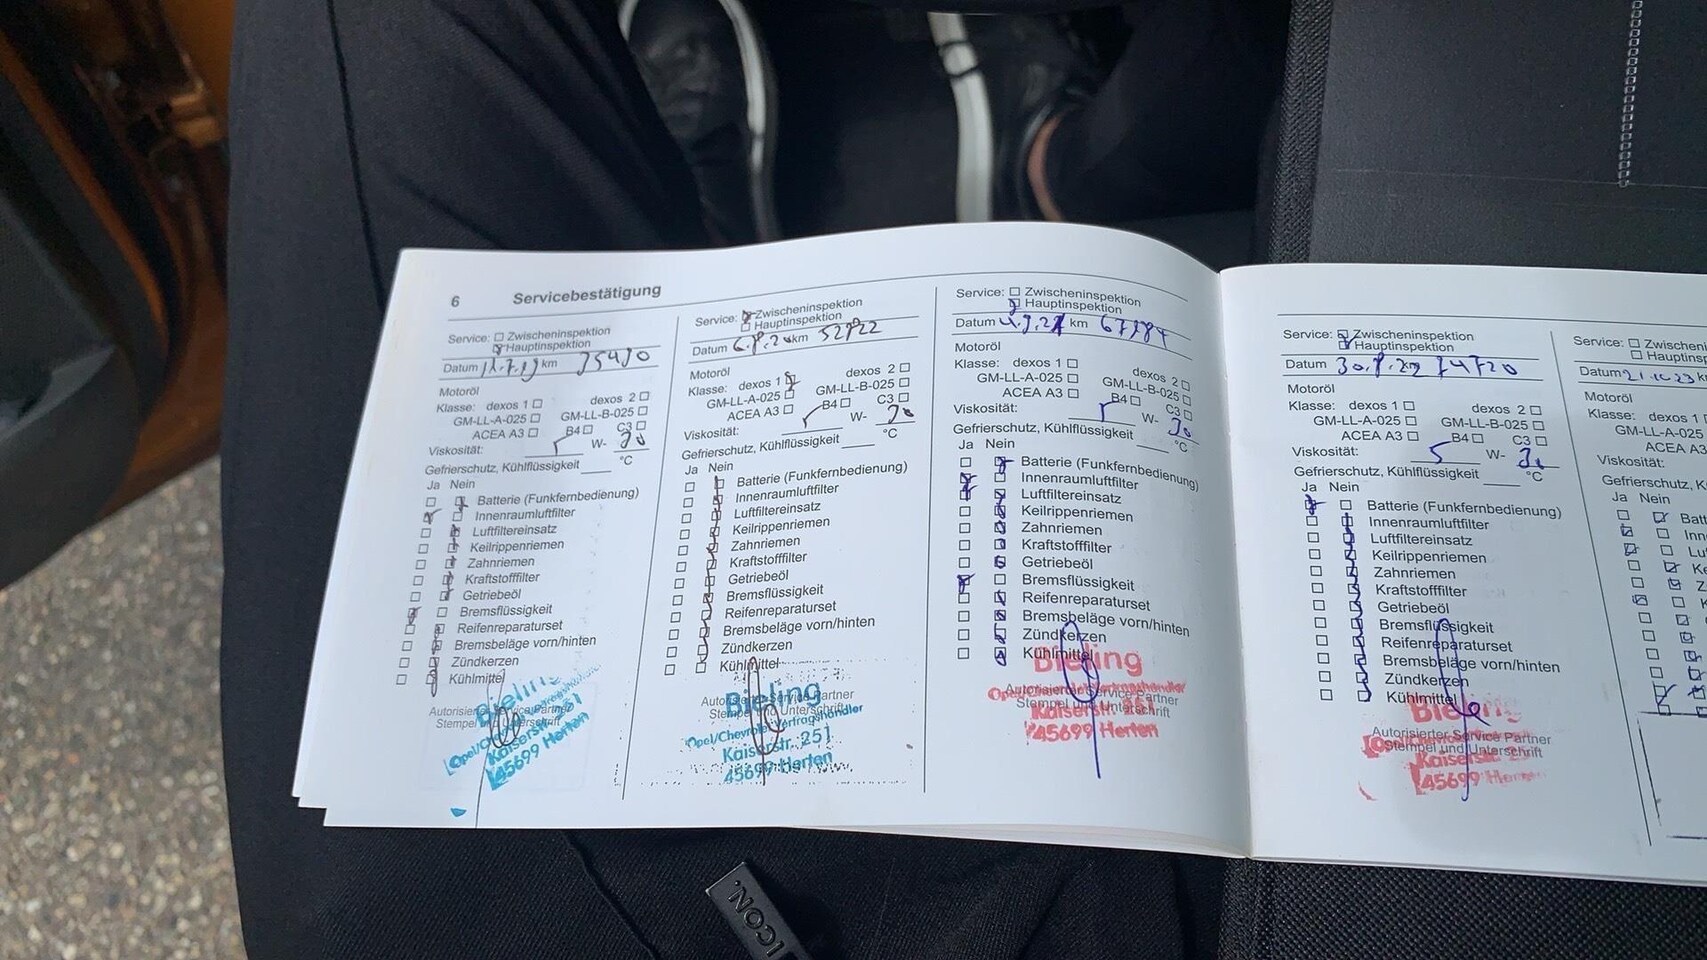 6 Servicebestätigung
Service: Zwischeninspektion
Hauptinspektion
Datum km
Motoröl
Klasse: dexos 1 dexos 2
GM-LL-A-025 GM-LL-B-025
ACEA A3 B4 C3
Viskosität: 5 W- 30
Gefrierschutz, Kühlflüssigkeit °C
Ja Nein
Batterie (Funkfernbedienung)
Innenraumluftfilter
Luftfiltereinsatz
Keilrippenriemen
Zahnriemen
Kraftstofffilter
Getriebeöl
Bremsflüssigkeit
Reifenreparaturset
Bremsbeläge vorn/hinten
Zündkerzen
Kühlmittel
Autorisierter Service Partner
Stempel und Unterschrift
Bieling
Kaiserstr. 251
45699 Herten
Service: Zwischeninspektion
Hauptinspektion
Datum 6.8.20 km 52822
Motoröl
Klasse: dexos 1 dexos 2
GM-LL-A-025 GM-LL-B-025
ACEA A3 B4 C3
Viskosität: 5 W- 30
Gefrierschutz, Kühlflüssigkeit °C
Ja Nein
Batterie (Funkfernbedienung)
Innenraumluftfilter
Luftfiltereinsatz
Keilrippenriemen
Zahnriemen
Kraftstofffilter
Getriebeöl
Bremsflüssigkeit
Reifenreparaturset
Bremsbeläge vorn/hinten
Zündkerzen
Kühlmittel
Autorisierter Service Partner
Stempel und Unterschrift
Bieling
Opel/Chevrolet Vertragshändler
Kaiserstr. 251
45699 Herten
Service: Zwischeninspektion
Hauptinspektion
Datum km
Motoröl
Klasse: dexos 1 dexos 2
GM-LL-A-025 GM-LL-B-025
ACEA A3 B4 C3
Viskosität: 5 W- 30
Gefrierschutz, Kühlflüssigkeit °C
Ja Nein
Batterie (Funkfernbedienung)
Innenraumluftfilter
Luftfiltereinsatz
Keilrippenriemen
Zahnriemen
Kraftstofffilter
Getriebeöl
Bremsflüssigkeit
Reifenreparaturset
Bremsbeläge vorn/hinten
Zündkerzen
Kühlmittel
Autorisierter Service Partner
Stempel und Unterschrift
Bieling
Kaiserstr. 251
45699 Herten
Service: Zwischeninspektion
Hauptinspektion
Datum 30.8.22 74720
Motoröl
Klasse: dexos 1 dexos 2
GM-LL-A-025 GM-LL-B-025
ACEA A3 B4 C3
Viskosität: 5 W- 30
Gefrierschutz, Kühlflüssigkeit °C
Ja Nein
Batterie (Funkfernbedienung)
Innenraumluftfilter
Luftfiltereinsatz
Keilrippenriemen
Zahnriemen
Kraftstofffilter
Getriebeöl
Bremsflüssigkeit
Reifenreparaturset
Bremsbeläge vorn/hinten
Zündkerzen
Kühlmittel
Autorisierter Service Partner
Stempel und Unterschrift
Kaiserstr.
45699 Herten
Service: Zwischenin
Hauptinsp
Datum
Motoröl
Klasse: dexos 1
GM-LL-A-025
ACEA A3
Viskosität:
Gefrierschutz, K
Ja Nein
Batt
Inn
Lu
Ke
Z
K
ICON.